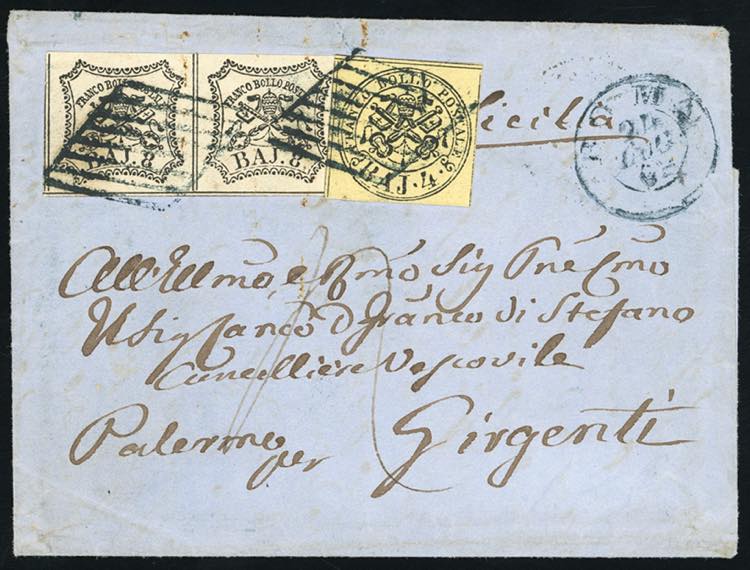 FRANCO BOLLO POSTALE
BAJ. 8
FRANCO BOLLO POSTALE
BAJ. 8
BOLLO POSTALE
BAJ. 4.
Sicilia
ROMA
All'Illmo, e Rmo Sig Pne Cmo
Il Sig Canco D. Franco Di Stefano
Cancelliere Vescovile
Palermo
per Girgenti